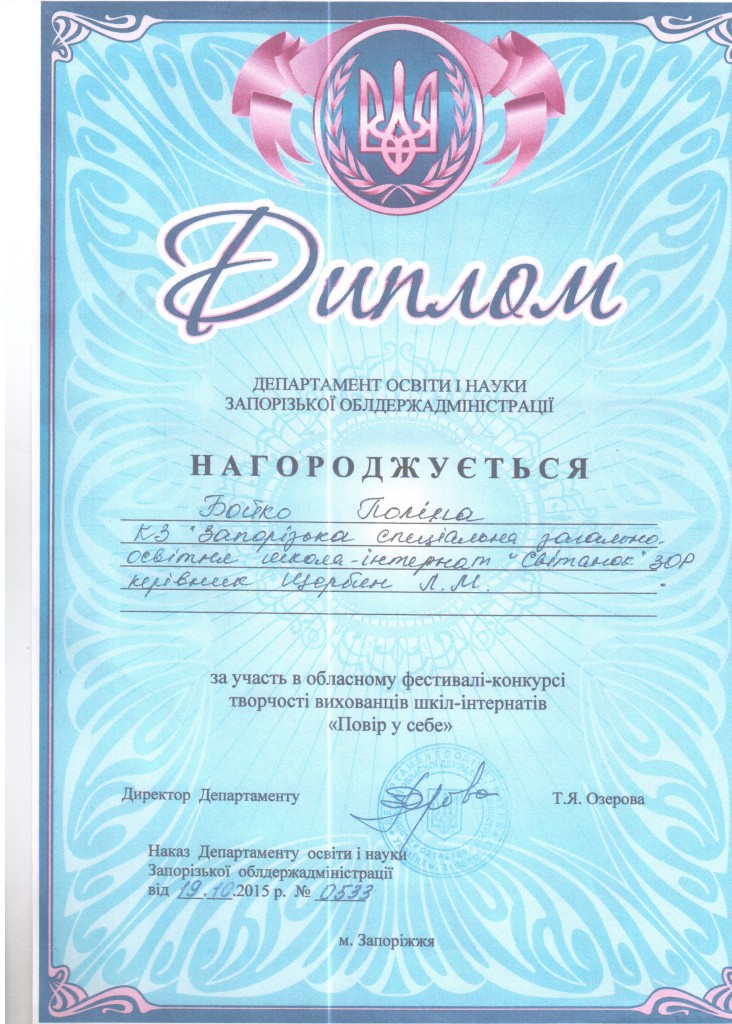 Диплом
ДЕПАРТАМЕНТ ОСВІТИ І НАУКИ
ЗАПОРІЗЬКОЇ ОБЛДЕРЖАДМІНІСТРАЦІЇ
НАГОРОДЖУЄТЬСЯ
Бойко Поліна
КЗ "Запорізька спеціальна загально-
освітня школа-інтернат "Світанок" ЗОР
керівник Щербин Л.М.
за участь в обласному фестивалі-конкурсі
творчості вихованців шкіл-інтернатів
«Повір у себе»
Директор Департаменту Т.Я. Озерова
Наказ Департаменту освіти і науки
Запорізької облдержадміністрації
від 19.10.2015 р. № 0533
м. Запоріжжя